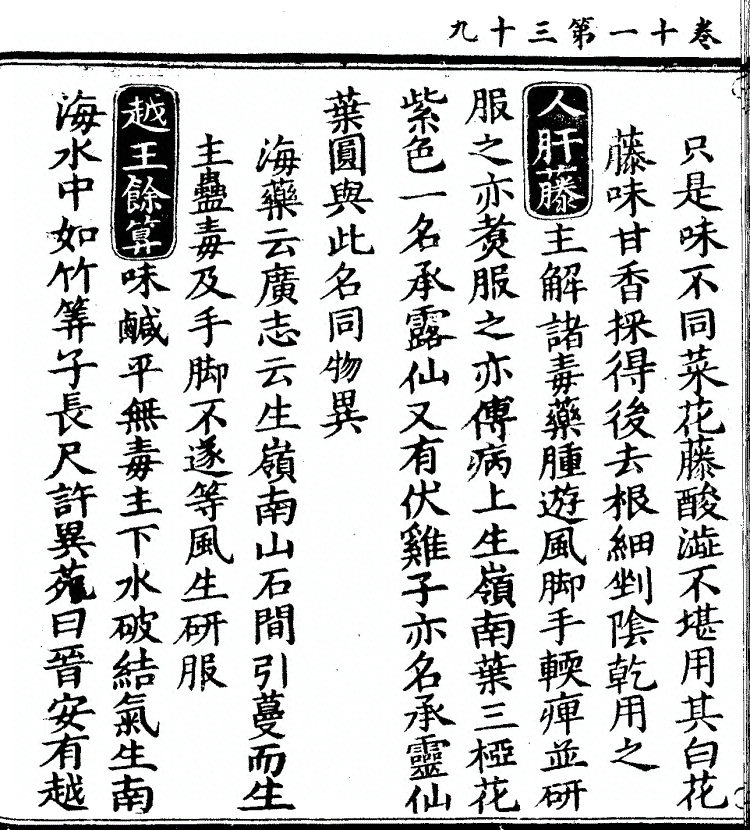 卷十一第三十九
只是味不同菜花藤酸澁不堪用其白花
藤味甘香採得後去根細剉陰乾用之
人肝藤主解諸毒藥腫遊風脚手軟痺並研
服之亦煑服之亦傅病上生嶺南葉三椏花
紫色一名承露仙又有伏雞子亦名承靈仙
葉圓與此名同物異
海藥云廣志云生嶺南山石間引蔓而生
主蠱毒及手脚不遂等風生研服
越王餘筭味鹹平無毒主下水破結氣生南
海水中如竹筭子長尺許異苑曰晉安有越